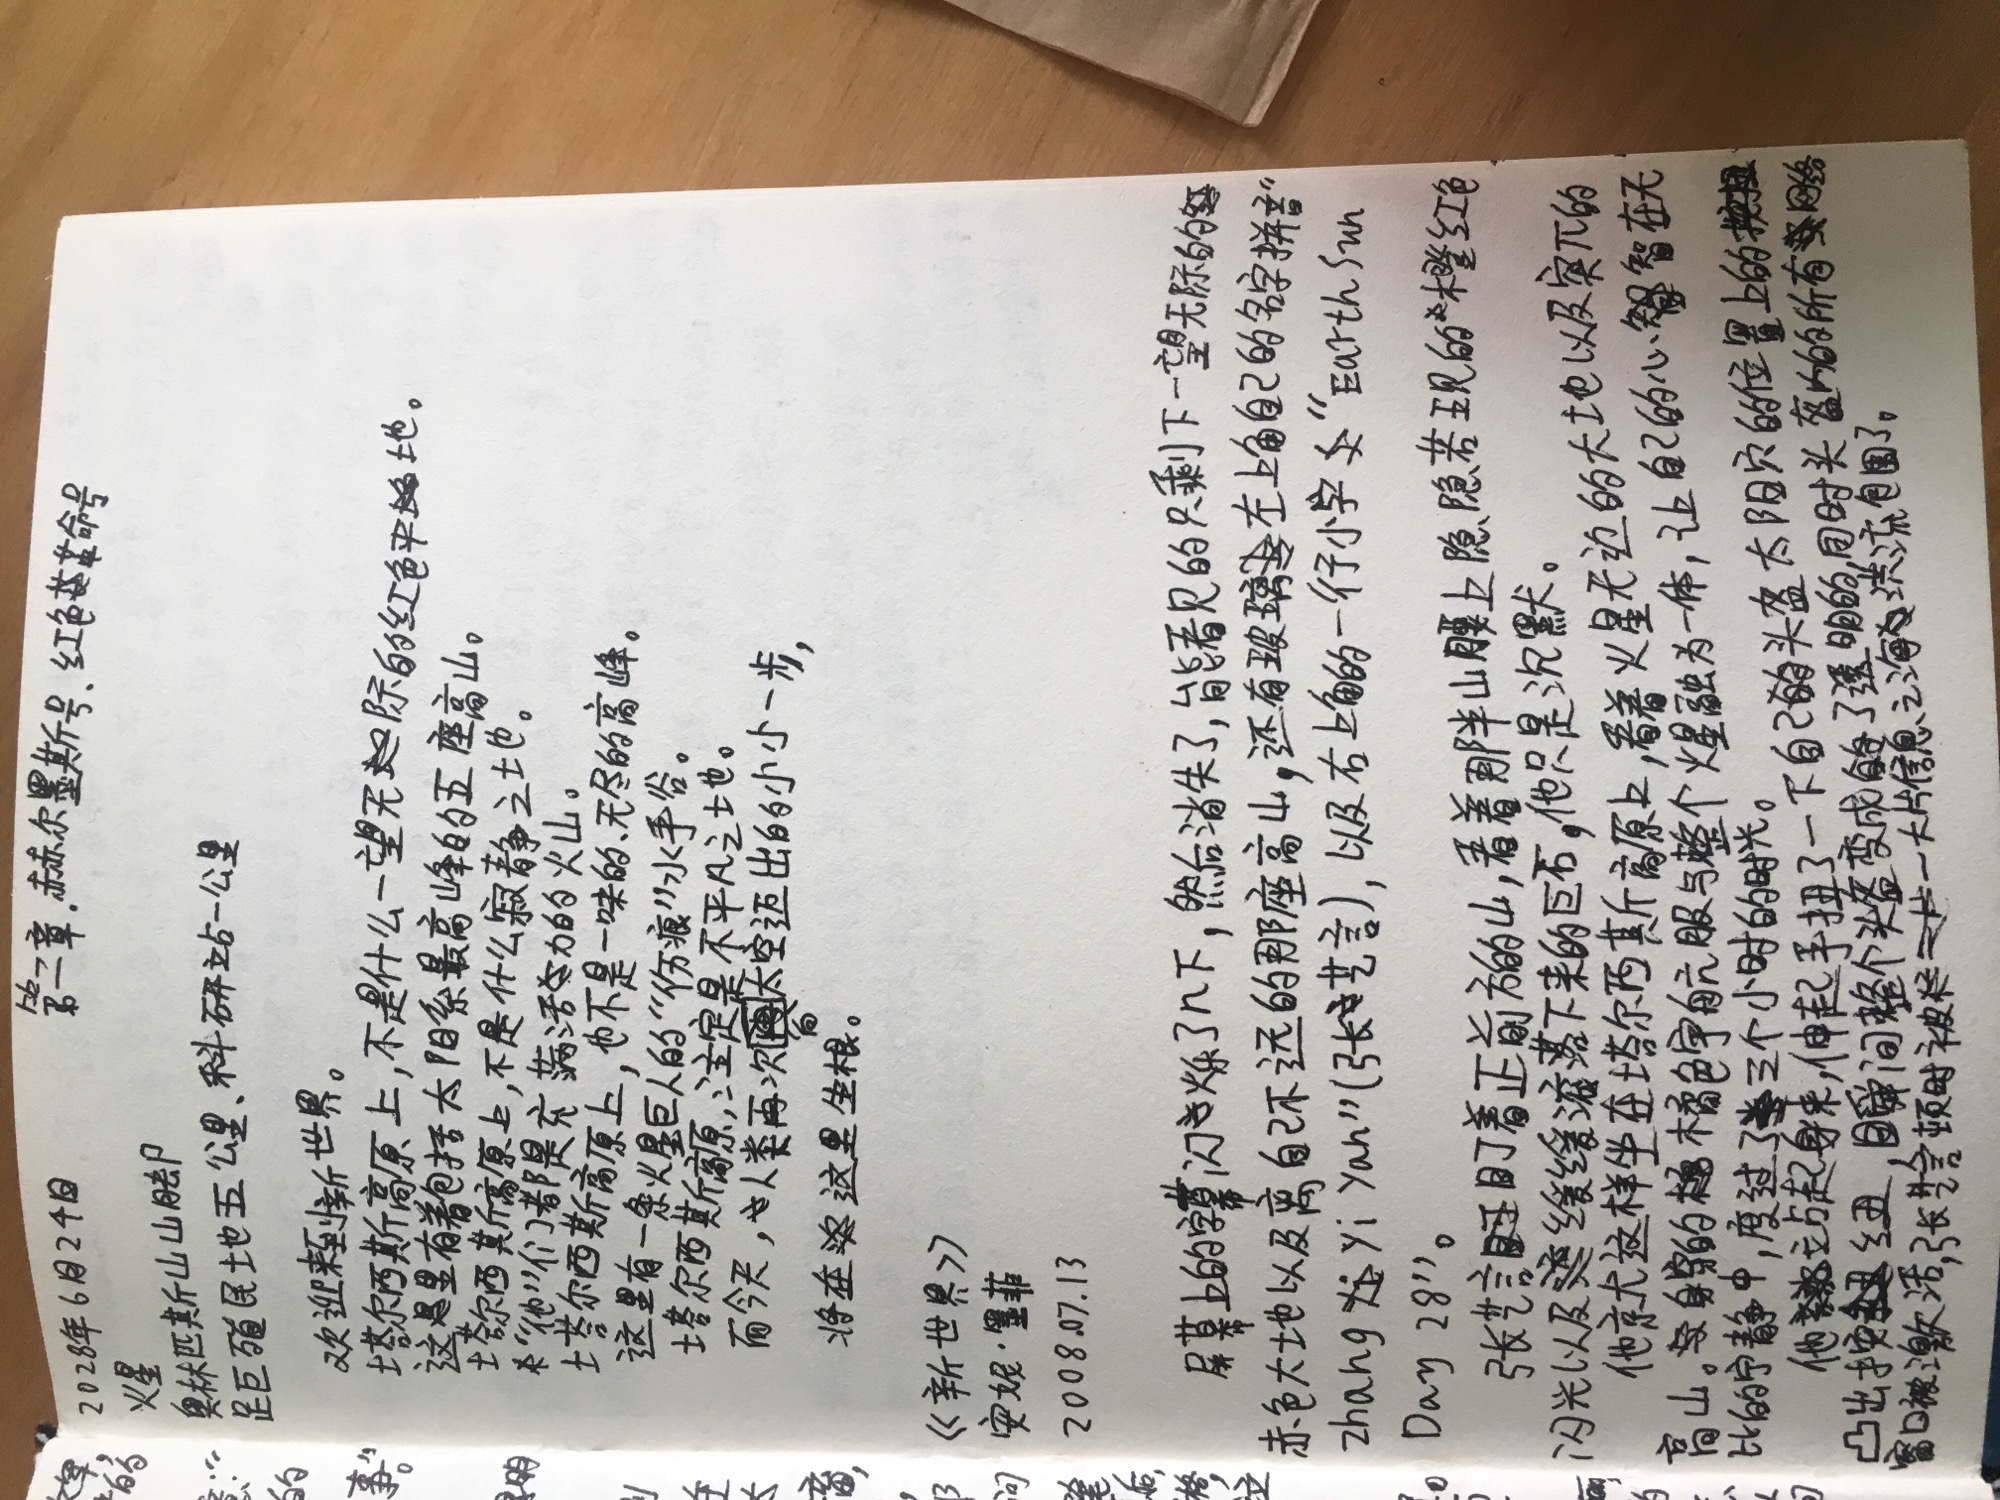 第二章.赫尔墨斯号、红色革命号
2028年6月24日
火星
奥林匹斯山山脚
距殖民地五公里、科研站一公里
欢迎来到新世界。
塔尔西斯高原上,不是什么一望无际的红色平地。
这里有着包括太阳系最高峰的五座高山。
塔尔西斯高原上,不是什么寂静之土地。
“他”们都是充满活力的火山。
塔尔西斯高原上,也不是一味的、无尽的高峰。
这里有一条火星巨人的“伤痕”水手谷。
塔尔西斯高原,注定是不平凡之土地。
而今天,人类再次向太空迈出的小小一步,
将在这里生根。
《新世界》
安妮·墨菲
2008.07.13
屏幕上的字幕闪烁了几下,然后消失了,能看见的只剩下一望无际的
赤色大地以及离自己不远的那座高山,还有玻璃左上角自己的名字拼音“
Zhang Yi Yan”(张艺言),以及右上角的一行小字“Earth Sun
Day 28”。
张艺言盯着正前方的山,看着那半山腰上隐隐若现的橙红色
闪光以及缓缓滚落下来的巨石,他只是沉默。
他就这样坐在塔尔西斯高原上,看着火星无边的大地以及突兀的
高山。身穿的橘色宇航服与整个火星融为一体,让自己的心智在无
比的宁静中,度过了三个小时的时光。
他站起身来,伸起手扭了一下自己的头盔太阳穴的位置上的
凸出按钮,瞬间整个头盔变成了透明的,同时头盔的所有网络
窗口被激活,张艺言顿时被一大片信息之海洪流包围了。